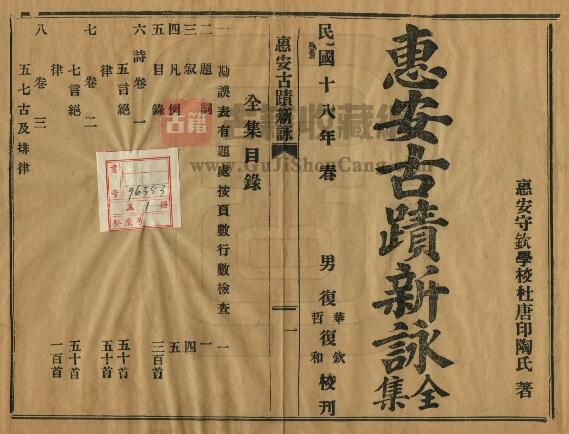 惠安守欽學校杜唐印陶氏 著
惠安古蹟新詠全集
民國十八年春 男復華哲復欽和校刊
惠安古蹟新詠 一
全集目錄
一 勘誤表有題處按頁數行數檢查 一
二 題詞 一
三 叙 四
四 凡例 五
五 目錄 三百首
六 詩卷一
五言絕 五十首
律 五十首
七 卷二
七言絕 五十首
律 一百首
八 卷三
五七古及排律
書
號 96353
1 冊
古籍
收藏
www.GuJiShouCang.